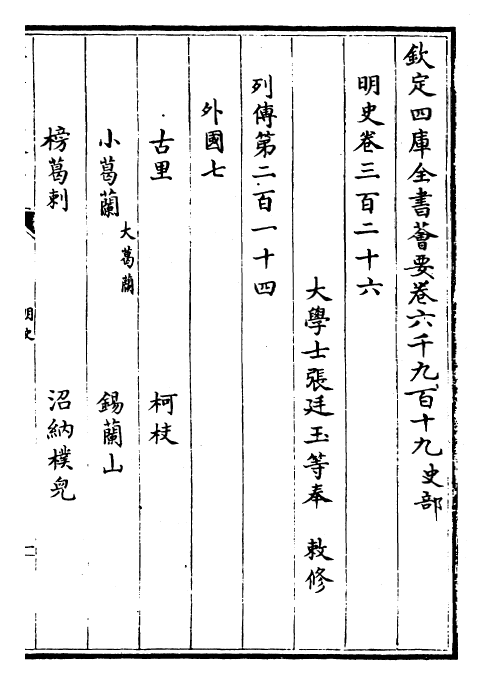 欽定四庫全書薈要卷六千九百十九史部
明史卷三百二十六
大學士張廷玉等奉 敕修
列傳第二百一十四
外國七
古里 柯枝
小葛蘭 大葛蘭 錫蘭山
榜葛剌 沼納樸兒
明史